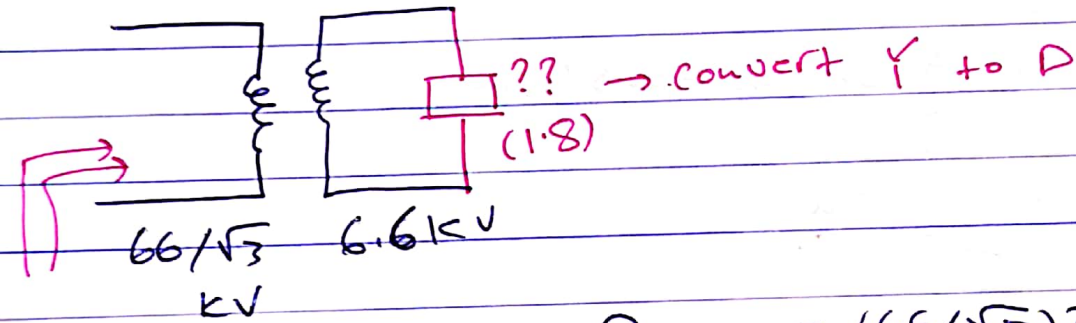 ?? → convert Y to D
(1.8)
66/√3 6.6 kV
kV